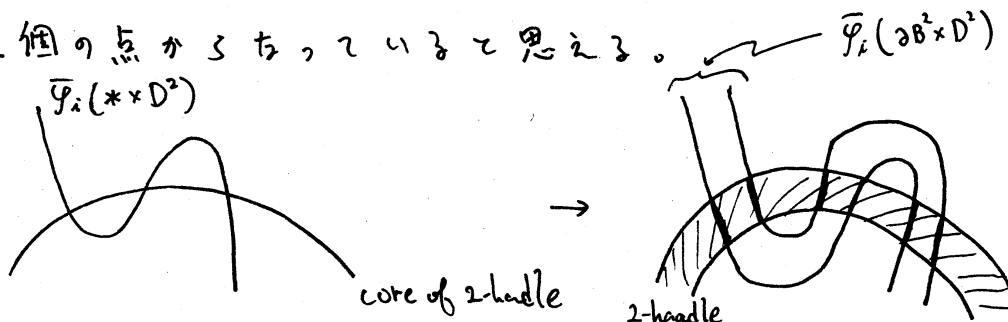 個の点からなっていると思える。
φ̄ᵢ(∂B²×D²)
φ̄ᵢ(*×D²)
→
core of 2-handle
2-haadle